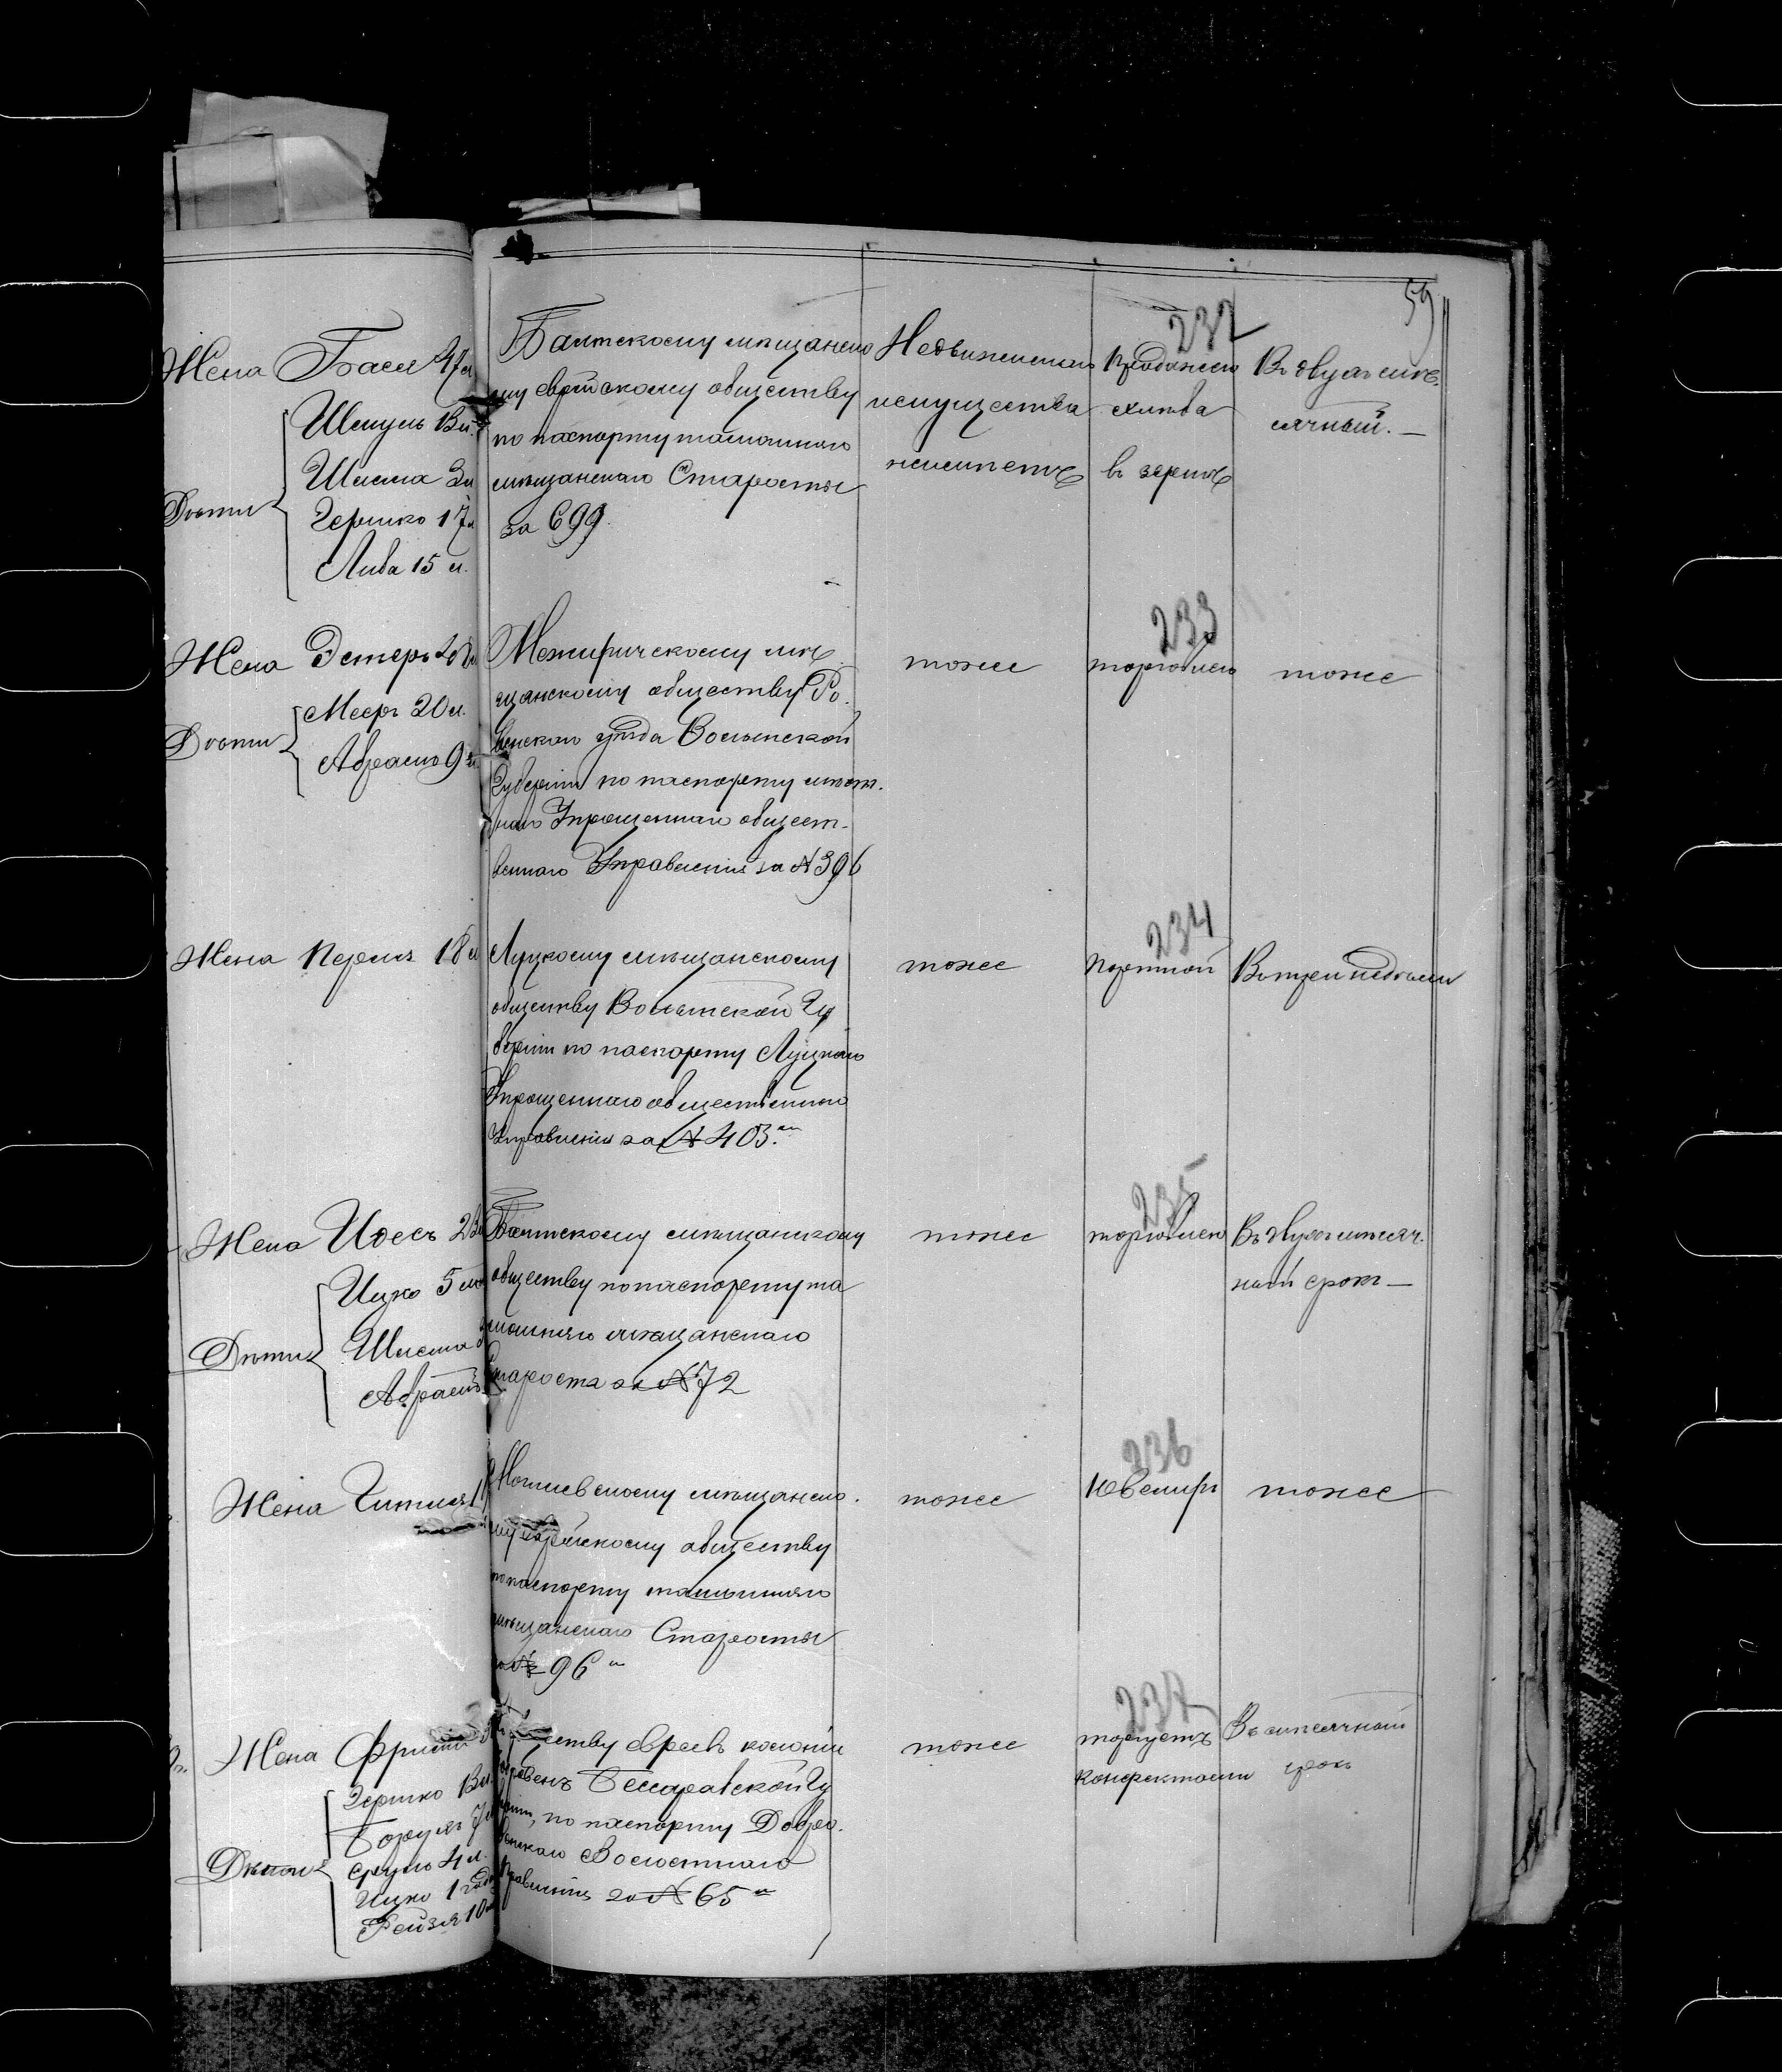 59
232
Жена Бася 47 л
Дѣти
Шмуль 13 л.
Шлема 3 л
Гершко 17 л
Лива 15 л.
Балтскому мѣщанско
му еврейскому обществу
по паспорту тамошняго
мѣщанскаго Старосты
за 699.
Недвижимаго
имущества
неимѣетъ
Продажею
хлѣба
въ зернѣ
Въ двухъ мѣ-
сячный. —
233
Жена Эстеръ
Дѣти
Мееръ 20 л.
Абрамъ 9 л.
Межиричскому мѣ
щанскому обществу Ро-
венскаго уѣзда Волынской
Губерніи по паспорту мѣст-
наго Упрощеннаго общест-
веннаго Управленія за № 396
тоже
торговлею
тоже
234
Жена Перля 18 л
Луцкому мѣщанскому
обществу Волынской Гу
берніи по паспорту Луцкаго
Упрощеннаго общественнаго
Управленія за № 403.
тоже
Портной
Въ три недѣли
235
Жена Идесъ 23
Дѣти
Ицко 5
Шлема
Абрамъ
Балтскому мѣщанскому
обществу по паспорту та
мошняго мѣщанскаго
Староста за № 72
тоже
торговлею
Въ двухъ мѣсяч-
ный срокъ —
236
Жена Гитля
мѣщанско-
му еврейскому обществу
по паспорту тамошняго
мѣщанскаго Старосты
за № 96
тоже
Ювелиръ
тоже
237
Жена
Дѣти
Гершко 13 л.
7
Сруль 4 л.
Ицко 1 годъ
Рейзя 10
Обществу евреевъ колоніи
Бессарабской Гу
берніи, по паспорту Добро-
венскаго Волостнаго
Правленія за № 65
тоже
торгуетъ
Конфектами
Въ мѣсячный
срокъ